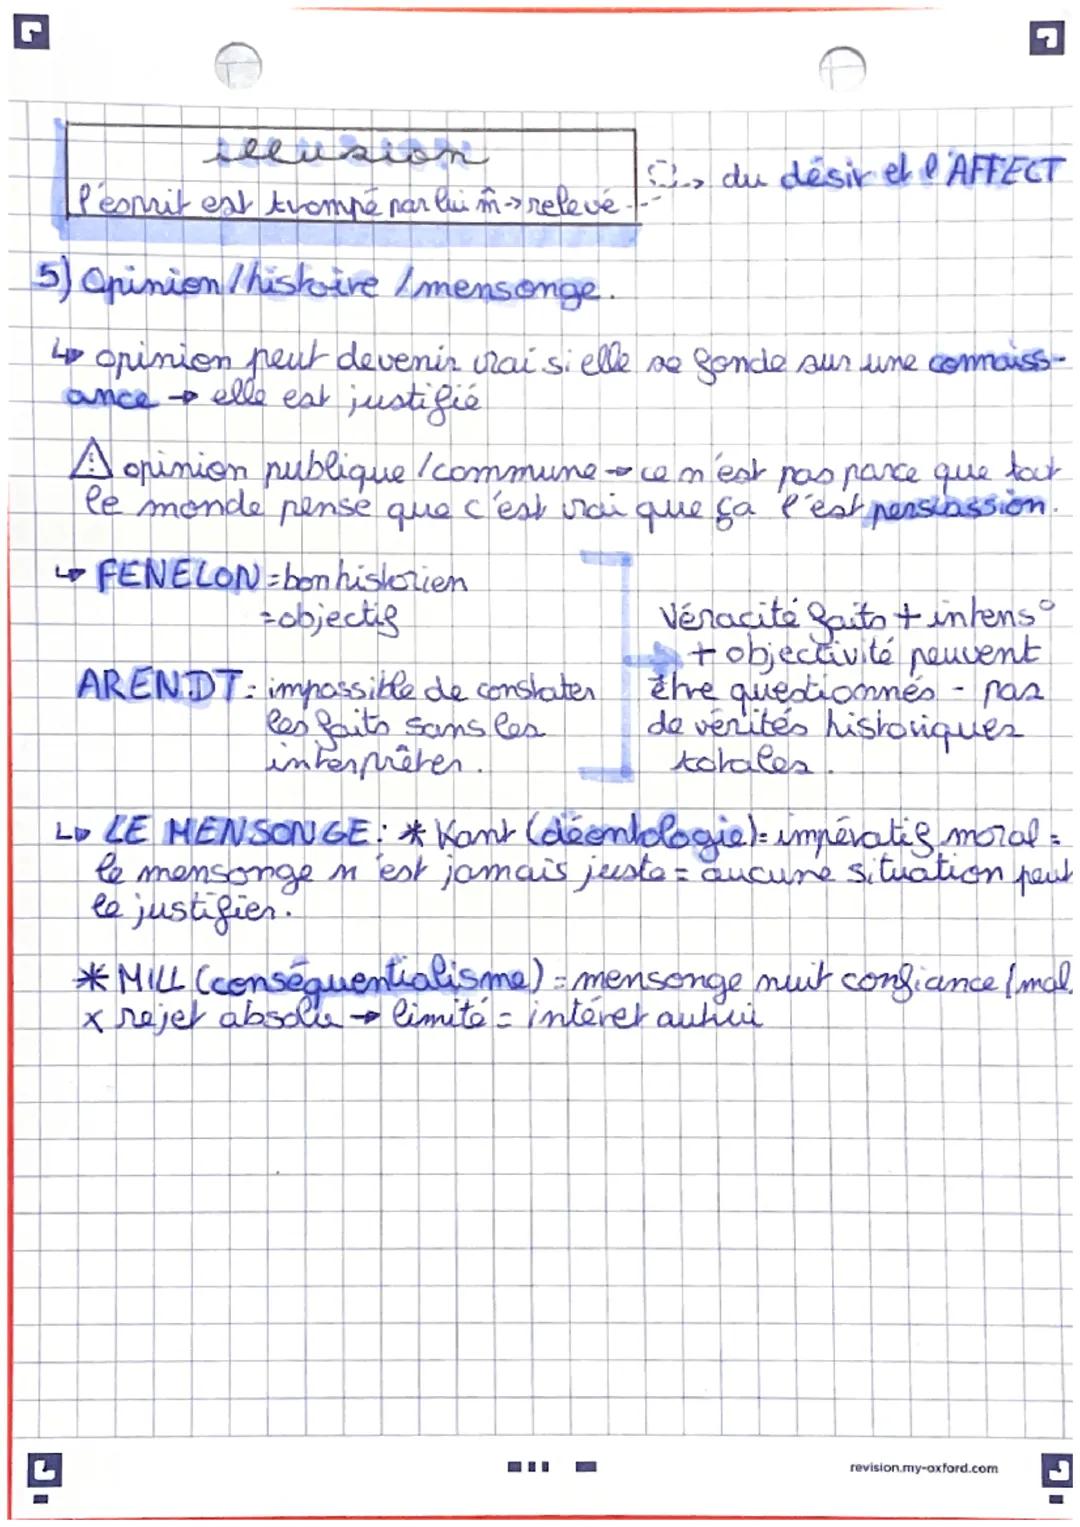 illusion
l'esprit est trompé par lui m̂ -> relève --> du désir et l'AFFECT
5) Opinion / histoire / mensonge.
↳ opinion peut devenir vrai si elle se fonde sur une connaiss-
ance → elle est justifié
⚠ opinion publique / commune → ce n'est pas parce que tout
le monde pense que c'est vrai que ça l'est persuassion.
↳ FENELON = bon historien
= objectif
ARENDT : impossible de constater
les faits sans les
interprêter.
Véracité faits + intens°
+ objectivité peuvent
être questionnés - pas
de vérités historiques
totales.
↳ LE MENSONGE : * Kant (déontologie) = impératif moral =
le mensonge n'est jamais juste = aucune situation peut
le justifier.
* MILL (conséquentialisme) = mensonge nuit confiance / mal.
x rejet absolu → limité = intéret autrui
revision.my-oxford.com